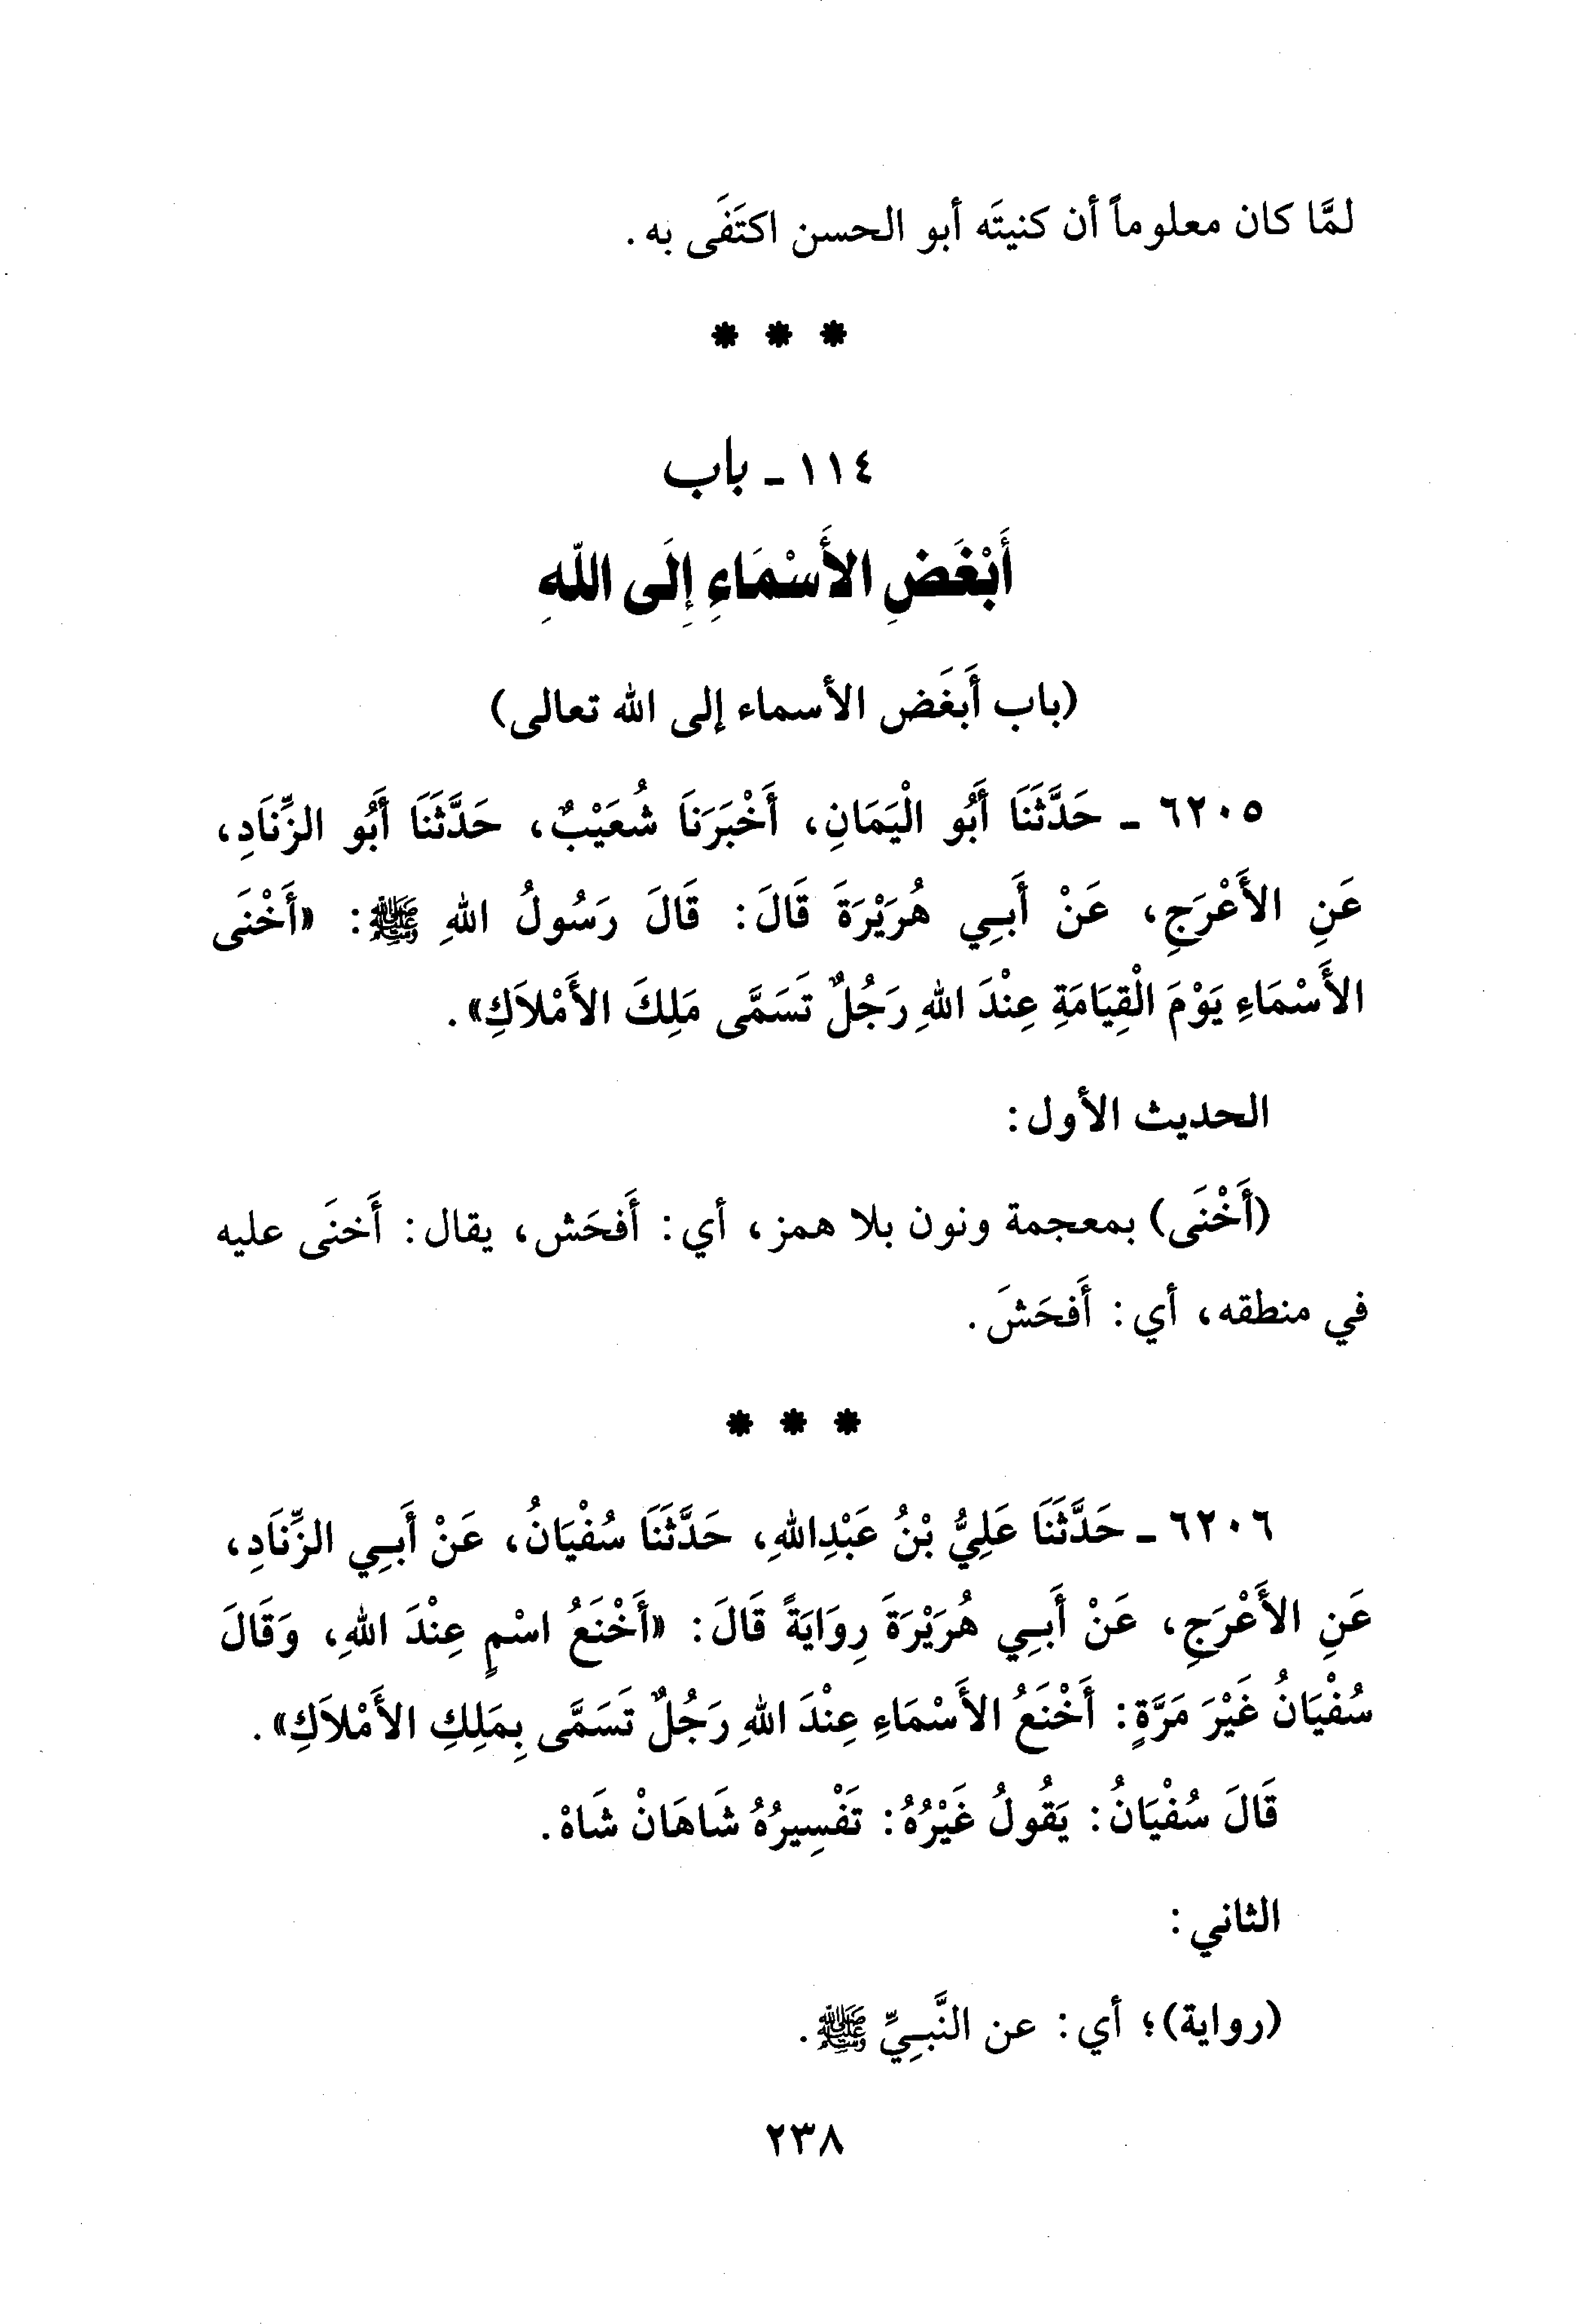 لمَّا كان معلوماً أن كنيتَه أبو الحسن اكتَفَى به.
* * *
١١٤ - باب
أَبْغَضِ الأَسْمَاءِ إِلَى اللهِ
(باب أَبغَض الأسماء إلى الله تعالى)
٦٢٠٥ - حَدَّثَنَا أَبُو الْيَمَانِ، أَخْبَرَنَا شُعَيْبٌ، حَدَّثَنَا أَبُو الزِّنَادِ،
عَنِ الأَعْرَجِ، عَنْ أَبِي هُرَيْرَةَ قَالَ: قَالَ رَسُولُ اللهِ ﷺ: «أَخْنَى
الأَسْمَاءِ يَوْمَ الْقِيَامَةِ عِنْدَ اللهِ رَجُلٌ تَسَمَّى مَلِكَ الأَمْلاَكِ».
الحديث الأول:
(أَخْنَى) بمعجمة ونون بلا همز، أي: أَفحَش، يقال: أَخنَى عليه
في منطقه، أي: أَفحَشَ.
* * *
٦٢٠٦ - حَدَّثَنَا عَلِيُّ بْنُ عَبْدِاللهِ، حَدَّثَنَا سُفْيَانُ، عَنْ أَبِي الزِّنَادِ،
عَنِ الأَعْرَجِ، عَنْ أَبِي هُرَيْرَةَ رِوَايَةً قَالَ: «أَخْنَعُ اسْمٍ عِنْدَ اللهِ، وَقَالَ
سُفْيَانُ غَيْرَ مَرَّةٍ: أَخْنَعُ الأَسْمَاءِ عِنْدَ اللهِ رَجُلٌ تَسَمَّى بِمَلِكِ الأَمْلاَكِ».
قَالَ سُفْيَانُ: يَقُولُ غَيْرُهُ: تَفْسِيرُهُ شَاهَانْ شَاهْ.
الثاني:
(رواية)؛ أي: عن النَّبِيِّ ﷺ.
٢٣٨